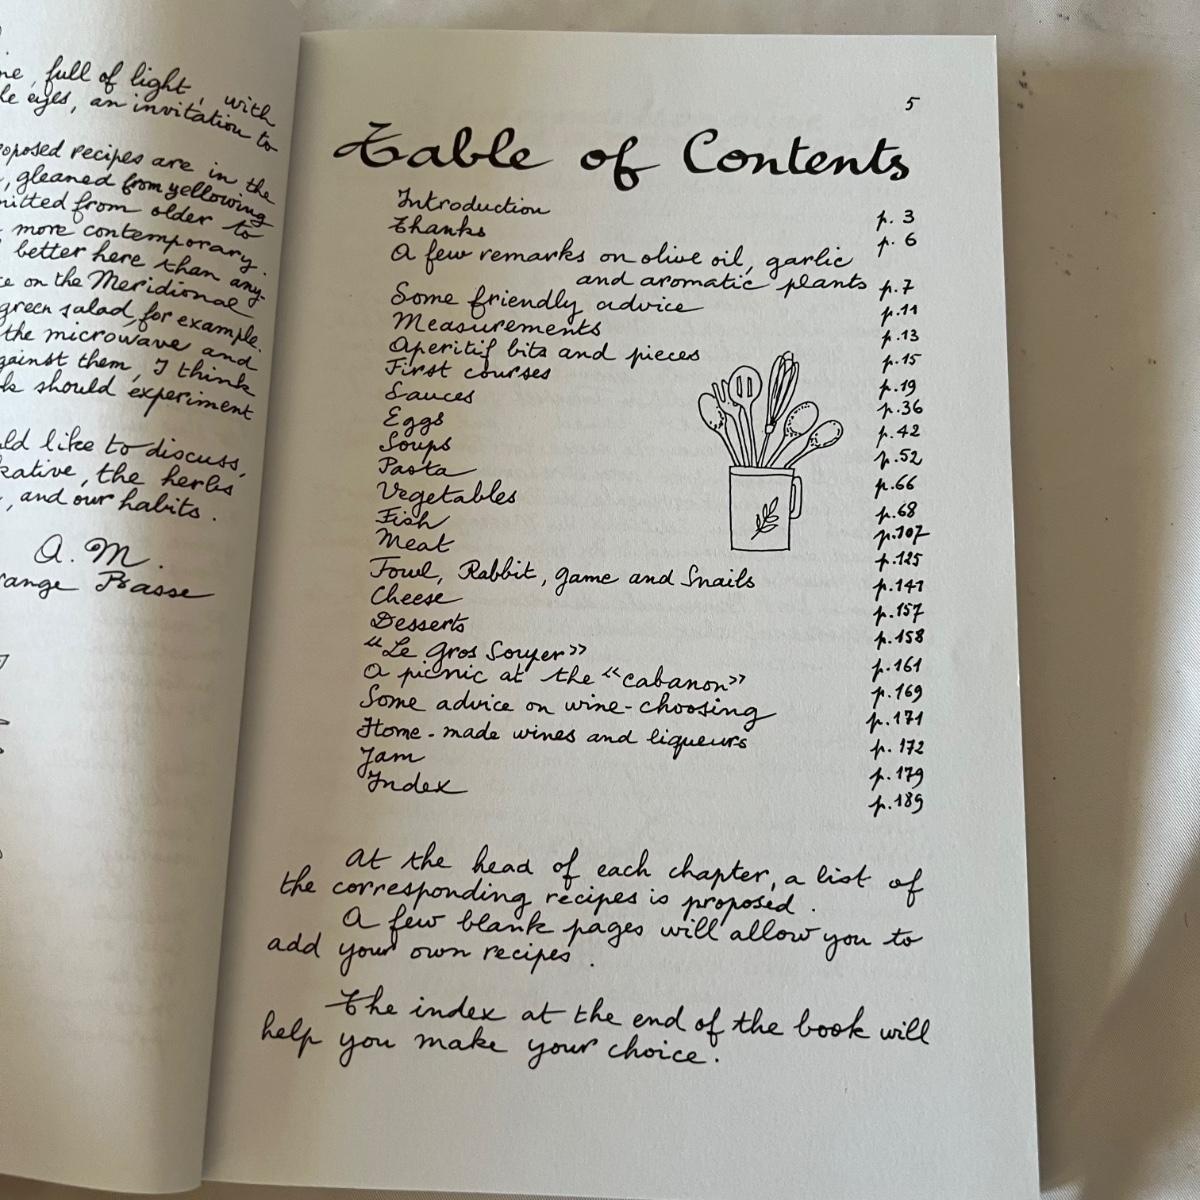 full of light, with
eyes, an invitation to
recipes are in the
, gleaned from yellowing
from older to
more contemporary.
better here than any-
on the Meridional
green salad, for example.
the microwave and
against them, I think
should experiment
like to discuss,
the herbs
, and our habits.
A.M.
Basse
5
Table of Contents
Introduction p. 3
Thanks p. 6
A few remarks on olive oil, garlic
and aromatic plants p. 7
Some friendly advice p. 11
Measurements p. 13
Aperitif bits and pieces p. 15
First courses p. 19
Sauces p. 36
Eggs p. 42
Soups p. 52
Pasta p. 66
Vegetables p. 68
Fish p. 107
Meat p. 125
Fowl, Rabbit, Game and Snails p. 141
Cheese p. 157
Desserts p. 158
"Le Gros Souper" p. 161
A picnic at the "cabanon" p. 169
Some advice on wine-choosing p. 171
Home-made wines and liqueurs p. 172
Jam p. 179
Index p. 189
At the head of each chapter, a list of
the corresponding recipes is proposed.
A few blank pages will allow you to
add your own recipes.
The index at the end of the book will
help you make your choice.